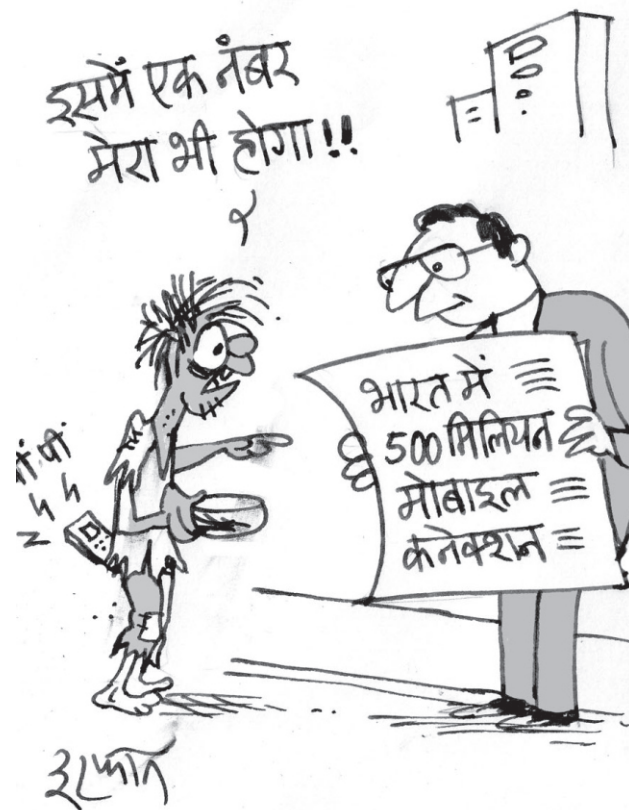 इसमें एक नंबर
मेरा भी होगा!!
भारत में
500 मिलियन
मोबाइल
कनेक्शन
इरफान